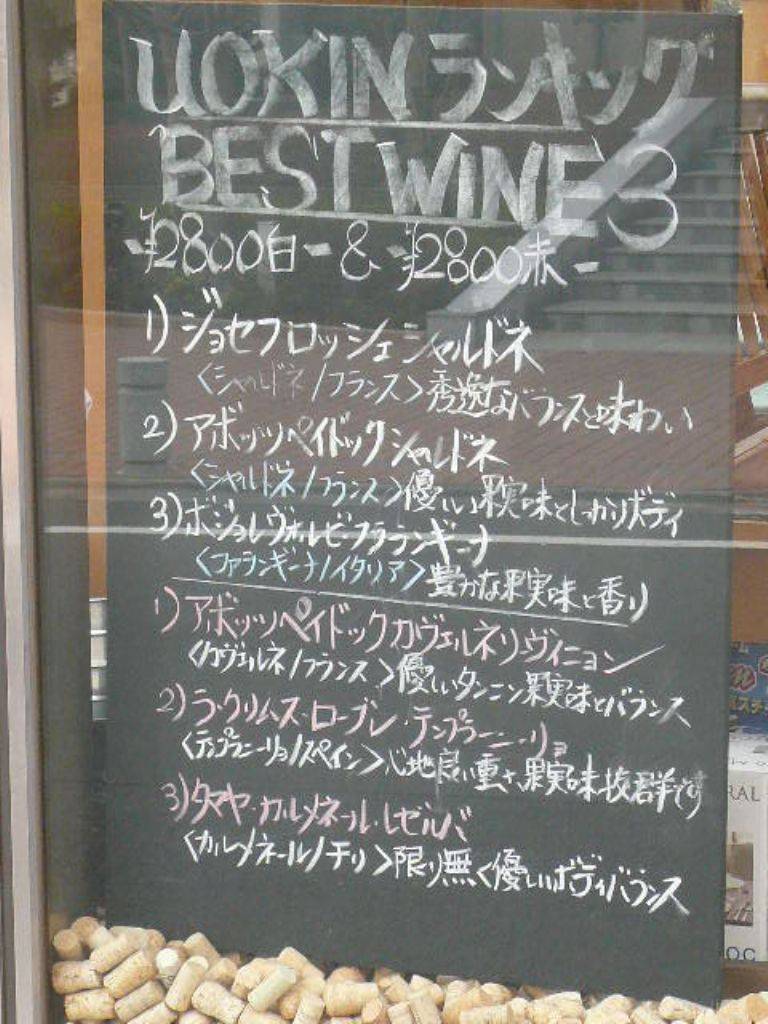 UOKINランキング
BEST WINE 3
-¥2800白- & -¥2800赤-
1)ジョセフロッシェシャルドネ
<シャルドネ/フランス>秀逸なバランスと味わい
2)アボッツペイドックシャルドネ
<シャルドネ/フランス>優しい果実味としっかりボディ
3)ボジョレヴォルビ・ファランギーナ
<ファランギーナ/イタリア>豊かな果実味と香り
1)アボッツペイドックカヴェルネソーヴィニョン
<カヴェルネ/フランス>優しいタンニン果実味とバランス
2)ラ・クリムス・ローブレ・テンプラニーリョ
<テンプラニーリョ/スペイン>心地良い重さ、果実味抜群です
3)タマヤ・カルメネール・レゼルバ
<カルメネール/チリ>限り無く優しいボディバランス
RAL
OC